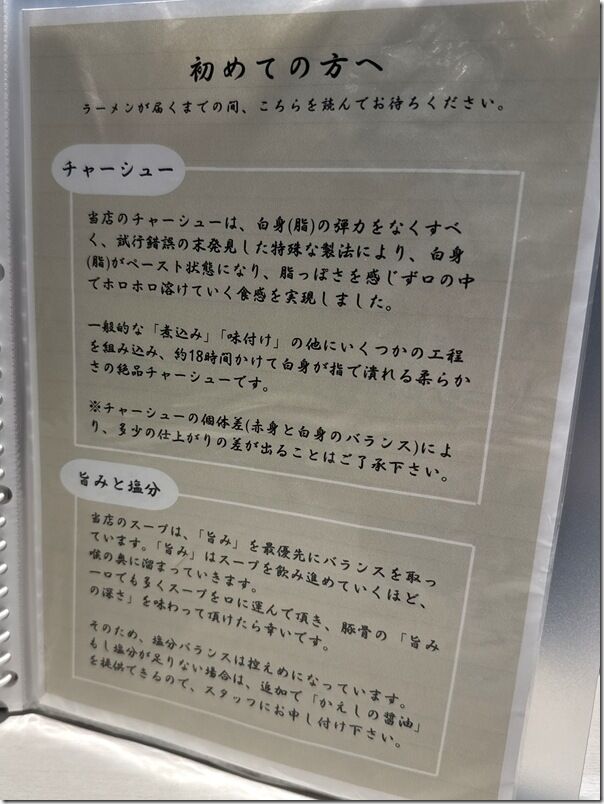 初めての方へ
ラーメンが届くまでの間、こちらを読んでお待ちください。
チャーシュー
当店のチャーシューは、白身(脂)の弾力をなくすべ
く、試行錯誤の末発見した特殊な製法により、白身
(脂)がペースト状態になり、脂っぽさを感じず口の中
でホロホロ溶けていく食感を実現しました。
一般的な「煮込み」「味付け」の他にいくつかの工程
を組み込み、約18時間かけて白身が指で潰れる柔らか
さの絶品チャーシューです。
※チャーシューの個体差(赤身と白身のバランス)によ
り、多少の仕上がりの差が出ることはご了承下さい。
旨みと塩分
当店のスープは、「旨み」を最優先にバランスを取っ
ています。「旨み」はスープを飲み進めていくほど、
喉の奥に溜まっていきます。
一口でも多くスープを口に運んで頂き、豚骨の「旨み
の深さ」を味わって頂けたら幸いです。
そのため、塩分バランスは控えめになっています。
もし塩分が足りない場合は、追加で「かえしの醤油」
を提供できるので、スタッフにお申し付け下さい。